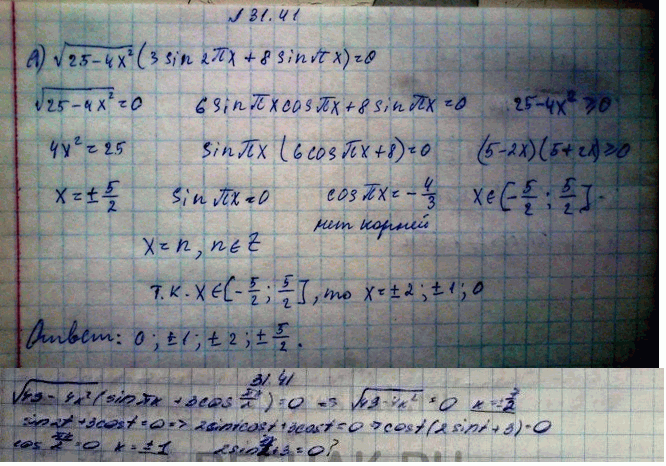 №31.41
а) √25-4x² (3 sin 2πx + 8 sin πx) = 0
√25-4x² = 0   6 sin πx cos πx + 8 sin πx = 0   25-4x² ≥ 0
4x² = 25   sin πx (6 cos πx + 8) = 0   (5-2x)(5+2x) ≥ 0
x = ± 5/2   sin πx = 0   cos πx = - 4/3   x ∈ [- 5/2 ; 5/2].
нет корней
x = n, n ∈ Z
т.к. x ∈ [- 5/2 ; 5/2], то x = ±2; ±1; 0
Ответ: 0; ±1; ±2; ± 5/2.
31.41
√49-4x² (sin πx + 3cos πx/2) = 0 => √49-4x² = 0
sin 2t + 3cost = 0 => 2sintcost + 3cost = 0 => cost (2sint + 3) = 0
cos πx/2 = 0   x = ±1   + 3 = 0?